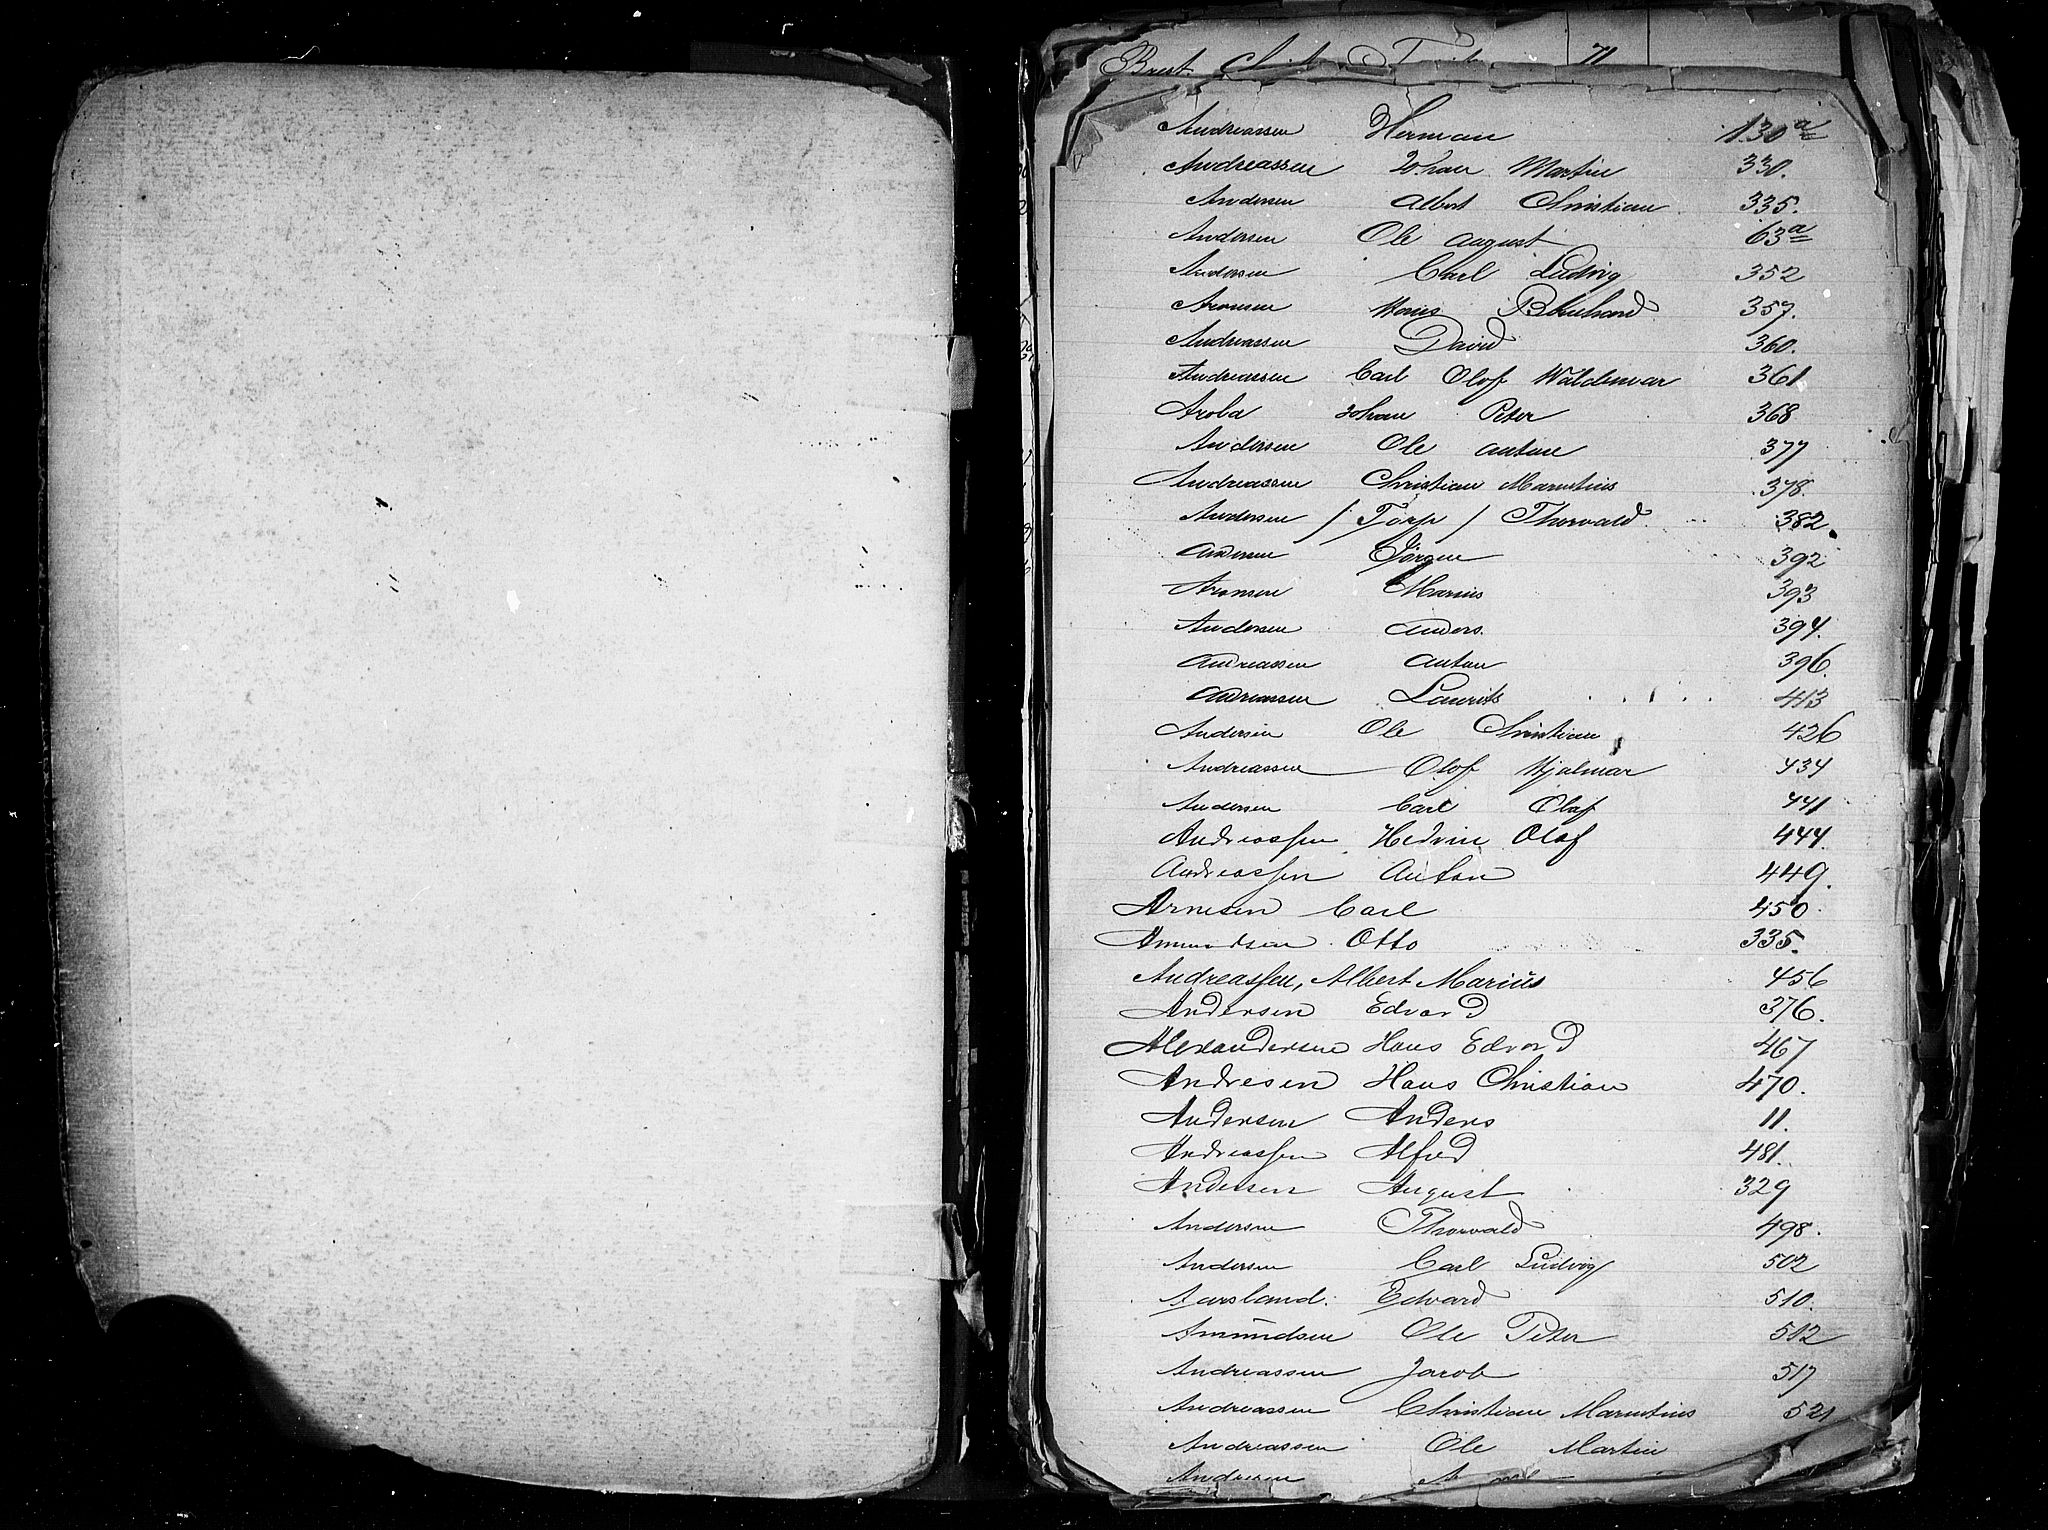 71
Andreassen Herman 130a
Andreassen Johan Martin 330.
Andersen Albert Christian 335.
Andersen Ole August 63a
Andersen Carl Ludvig 352
Aronsen 357.
Andreassen David 360.
Andreassen Carl Olof Waldemar 361
Arola Johan Peter 368
Andersen Ole Anton 377
Andreassen Christian Marentius 378.
Andersen / Torp / Thorvald 382.
Andersen Jörgen 392
Aronsen Marius 393
Andersen Anders. 394.
Andreassen Anton 396.
Andreassen Laurits 413
Andersen Ole Christian 426
Andreassen Olof Hjalmar 434
Andersen Carl Olaf 441
Andreassen Hedvin Olaf 444.
Andreassen Anton 449.
Arnesen Carl 450.
Amundsen Otto 335.
Andreassen, Albert Marius 456
Andersen Edvard 376.
Alexandersen Hans Edvard 467
Andresen Hans Christian 470.
Andersen Anders 11.
Andreassen Alfred 481.
Andersen August 329
Andersen Thorvald 498.
Andersen Carl Ludvig 502
Aarsland. Edvard 510.
Amundsen Ole Peter 512
Andreassen Jacob 517
Andreassen Christian Marentius 521
Andreassen Ole Martin
Andresen